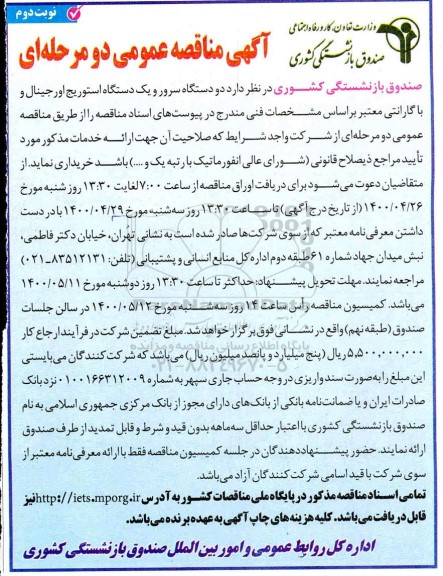 نوبت دوم
وزارت تعاون، کار و رفاه اجتماعی
صندوق بازنشستگی کشوری
آگهی مناقصه عمومی دو مرحله‌ای
صندوق بازنشستگی کشوری در نظر دارد دو دستگاه سرور و یک دستگاه استوریج اورجینال و
با گارانتی معتبر براساس مشخصات فنی مندرج در پیوست‌های اسناد مناقصه را از طریق مناقصه
عمومی دو مرحله‌ای از شرکت واجد شرایط که صلاحیت آن جهت ارائه خدمات مذکور مورد
تأیید مراجع ذیصلاح قانونی (شورای عالی انفورماتیک با رتبه یک و ....) باشد خریداری نماید. از
متقاضیان دعوت می‌شود برای دریافت اوراق مناقصه از ساعت ۷:۰۰ لغایت ۱۳:۳۰ روز شنبه مورخ
۱۴۰۰/۰۴/۲۶ (از تاریخ درج آگهی) تا ساعت ۱۳:۳۰ روز سه‌شنبه مورخ ۱۴۰۰/۰۴/۲۹ با در دست
داشتن معرفی‌نامه معتبر که از سوی شرکت‌ها صادر شده است به نشانی تهران، خیابان دکتر فاطمی،
نبش میدان جهاد شماره ۶۱ طبقه دوم اداره کل منابع انسانی و پشتیبانی (تلفن: ۸۳۵۱۲۱۳۱-۰۲۱)
مراجعه نمایند. مهلت تحویل پیشنهاد: حداکثر تا ساعت ۱۳:۳۰ روز دوشنبه مورخ ۱۴۰۰/۰۵/۱۱
می‌باشد. کمیسیون مناقصه رأس ساعت ۱۴ روز سه‌شنبه مورخ ۱۴۰۰/۰۵/۱۲ در سالن جلسات
صندوق (طبقه نهم) واقع در نشانی فوق برگزار خواهد شد. مبلغ تضمین شرکت در فرآیند ارجاع کار
۵,۵۰۰,۰۰۰,۰۰۰ ریال (پنج میلیارد و پانصد میلیون ریال) می‌باشد که شرکت کنندگان می‌بایستی
این مبلغ را به‌صورت سند واریزی در وجه حساب جاری سپهر به شماره ۰۱۰۰۱۶۶۳۱۲۰۰۹ نزد بانک
صادرات ایران و یا ضمانت‌نامه بانکی از بانک‌های دارای مجوز از بانک مرکزی جمهوری اسلامی به نام
صندوق بازنشستگی کشوری با اعتبار حداقل سه‌ماهه بدون قید و شرط و قابل تمدید از طرف صندوق
ارائه نمایند. حضور پیشنهاددهندگان در جلسه کمیسیون مناقصه فقط با ارائه معرفی‌نامه معتبر از
سوی شرکت با قید اسامی شرکت کنندگان آزاد می‌باشد.
تمامی اسناد مناقصه مذکور در پایگاه ملی مناقصات کشور به آدرس http://iets.mporg.ir نیز
قابل دریافت می‌باشد. کلیه هزینه‌های چاپ آگهی به عهده برنده می‌باشد.
اداره کل روابط عمومی و امور بین الملل صندوق بازنشستگی کشوری
پایگاه اطلاع رسانی مناقصه و مزایده
۰۲۱-۸۸۳۴۹۶۷۰-۵